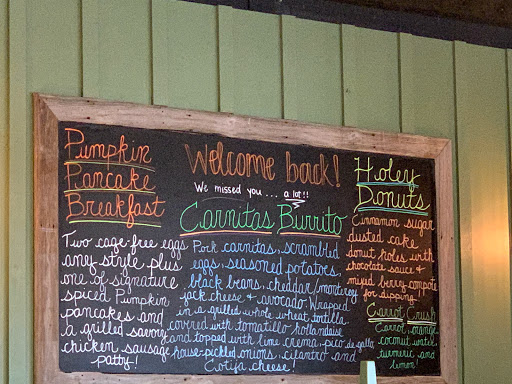 Pumpkin
Pancake
Breakfast
Two cage free eggs
any style plus
one of signature
spiced Pumpkin
pancakes and
a grilled savory
chicken sausage
patty!
Welcome back!
We missed you... a lot!!
Carnitas Burrito
Pork carnitas, scrambled
eggs, seasoned potatoes,
black beans, cheddar/monterey
jack cheese & avocado. Wrapped
in a grilled whole wheat tortilla
covered with tomatillo hollandaise
and topped with lime crema, pico de gallo,
house-pickled onions, cilantro and
Cotija cheese!
Holey
Donuts
Cinnamon sugar
dusted cake
donut holes with
chocolate sauce &
mixed berry compote
for dipping!!
Carrot Crush
Carrot, orange,
coconut water,
turmeric and
lemon!